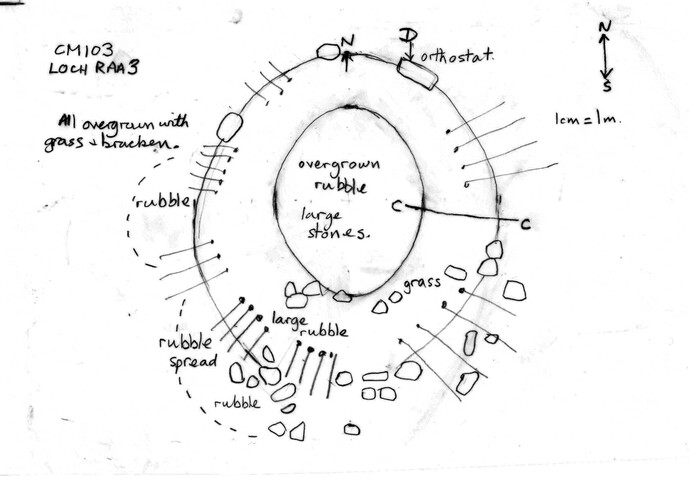 CM103
LOCH RAA3
N
D
orthostat.
N
S
1cm = 1m.
All overgrown with
grass & bracken.
overgrown
rubble
large
stones.
rubble
C
C
grass
large
rubble
rubble
spread
rubble